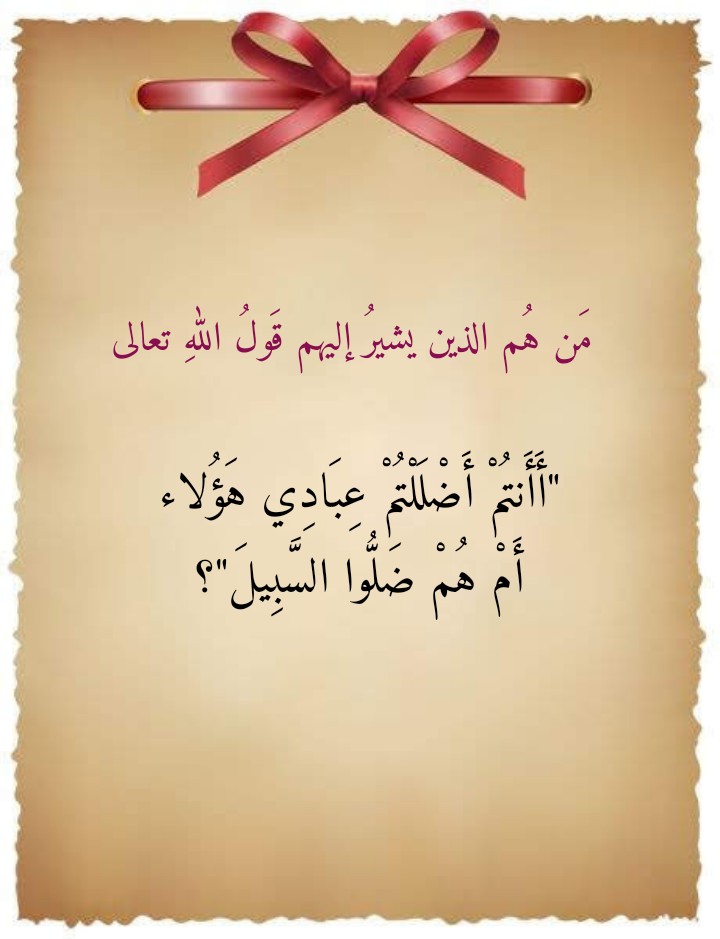 مَن هُم الذين يشيرُ إليهم قَولُ اللهِ تعالى
"أَأَنتُمْ أَضْلَلْتُمْ عِبَادِي هَؤُلاء
أَمْ هُمْ ضَلُّوا السَّبِيلَ"؟